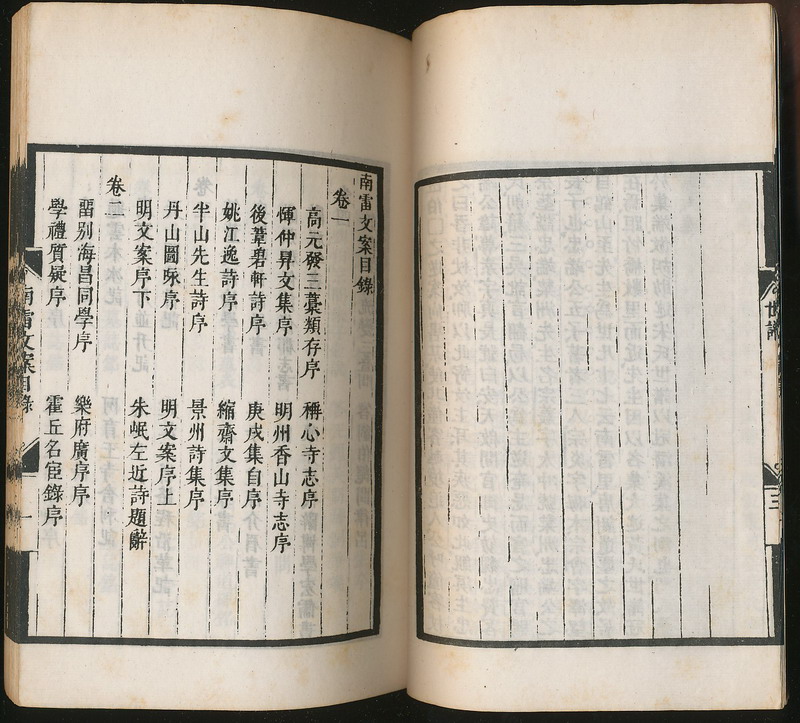 世譜
三
南雷文案目錄
卷一
高元發三藁類存序 稱心寺志序
惲仲昇文集序 明州香山寺志序
後葦碧軒詩序 庚戌集自序
姚江逸詩序 縮齋文集序
半山先生詩序 景州詩集序
丹山圖咏序 明文案序上
明文案序下 朱岷左近詩題辭
卷二
畱别海昌同學序 樂府廣序序
學禮質疑序 霍丘名宦錄序
南雷文案目錄
一